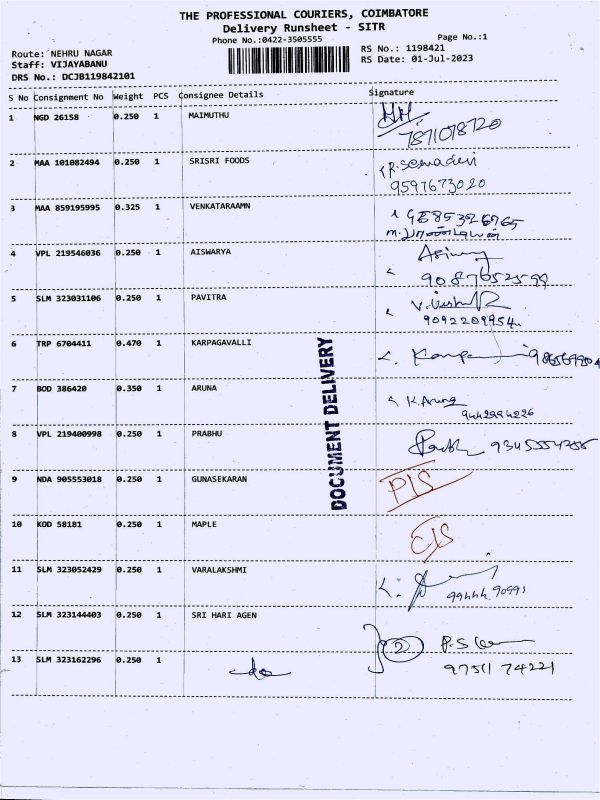 THE PROFESSIONAL COURIERS, COIMBATORE
Delivery Runsheet - SITR
Phone No.:0422-3505555 Page No.:1
Route: NEHRU NAGAR RS No.: 1198421
Staff: VIJAYABANU RS Date: 01-Jul-2023
DRS No.: DCJB119842101
S No Consignment No Weight PCS Consignee Details Signature
1 NGD 26158 0.250 1 MAIMUTHU
7871078720
2 MAA 101082494 0.250 1 SRISRI FOODS
9597673020
3 MAA 859195995 0.325 1 VENKATARAAMN
4 VPL 219546036 0.250 1 AISWARYA
9087652599
5 SLM 323031106 0.250 1 PAVITRA
9092209954
6 TRP 6704411 0.470 1 KARPAGAVALLI
7 BOD 386420 0.350 1 ARUNA K. Aruna
9442994226
8 VPL 219400998 0.250 1 PRABHU
9 NDA 905553018 0.250 1 GUNASEKARAN P/S
10 KOD 58181 0.250 1 MAPLE C/S
11 SLM 323052429 0.250 1 VARALAKSHMI
99444 90991
12 SLM 323144403 0.250 1 SRI HARI AGEN 2
13 SLM 323162296 0.250 1 do 97511 74221
DOCUMENT DELIVERY